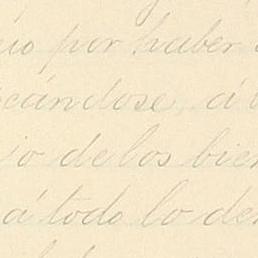 por haber
cándose, á
de los bien
á todo lo de